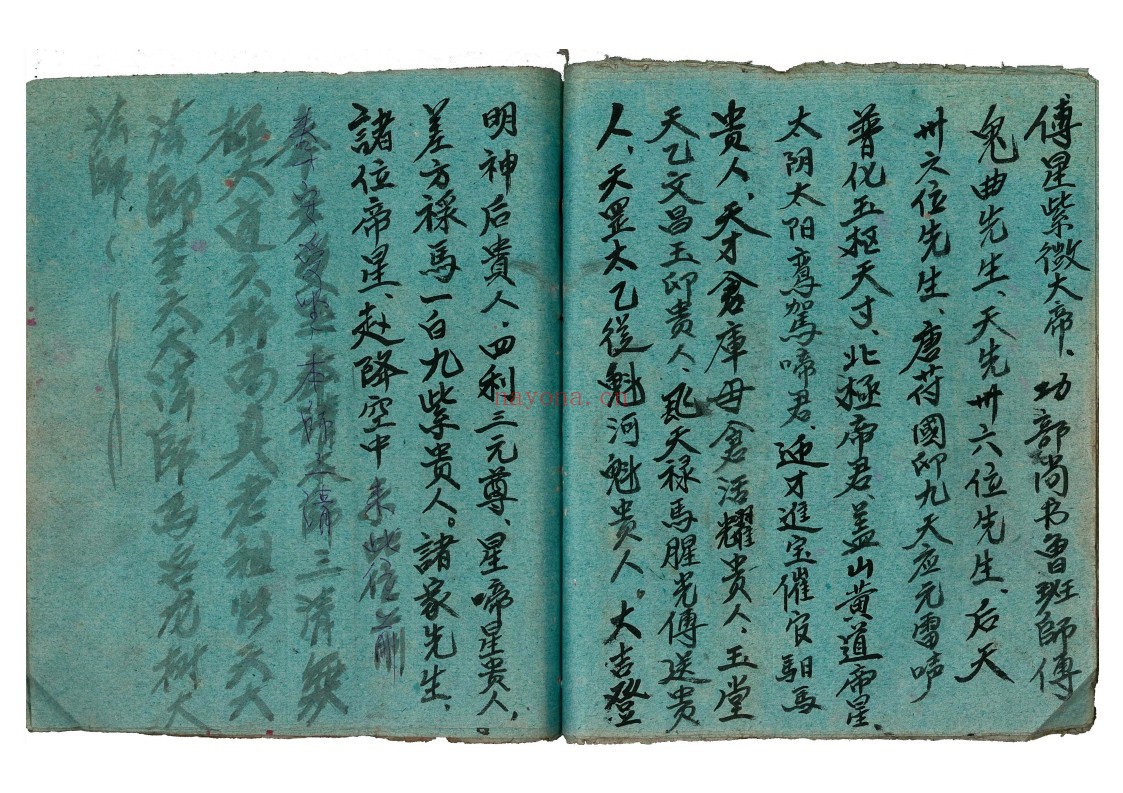 傅星紫微大帝、功部尚书魯班師傅
鬼曲先生、天先卅六位先生、后天
卅六位先生、唐苻國印九天应元雷声
普化五枢天寸、北極帝君、盖山黄道帝星、
太阴太阳鸾駕啼君、迎才進宝催官馹馬
貴人、天才倉庫母倉活耀贵人、玉堂
天乙文昌玉印贵人、天禄馬腥光傅送贵
人、天罡太乙従魁河魁贵人。大吉登
明神后貴人、四利三元尊、星啼星贵人、
差方禄馬一白九紫贵人。諸家先生、
諸位帝星、赴降空中来此位前
奉 安 本師 三清
極大道 高真老祖 天大
法師 天大法師 树大
法師
nayona.cn